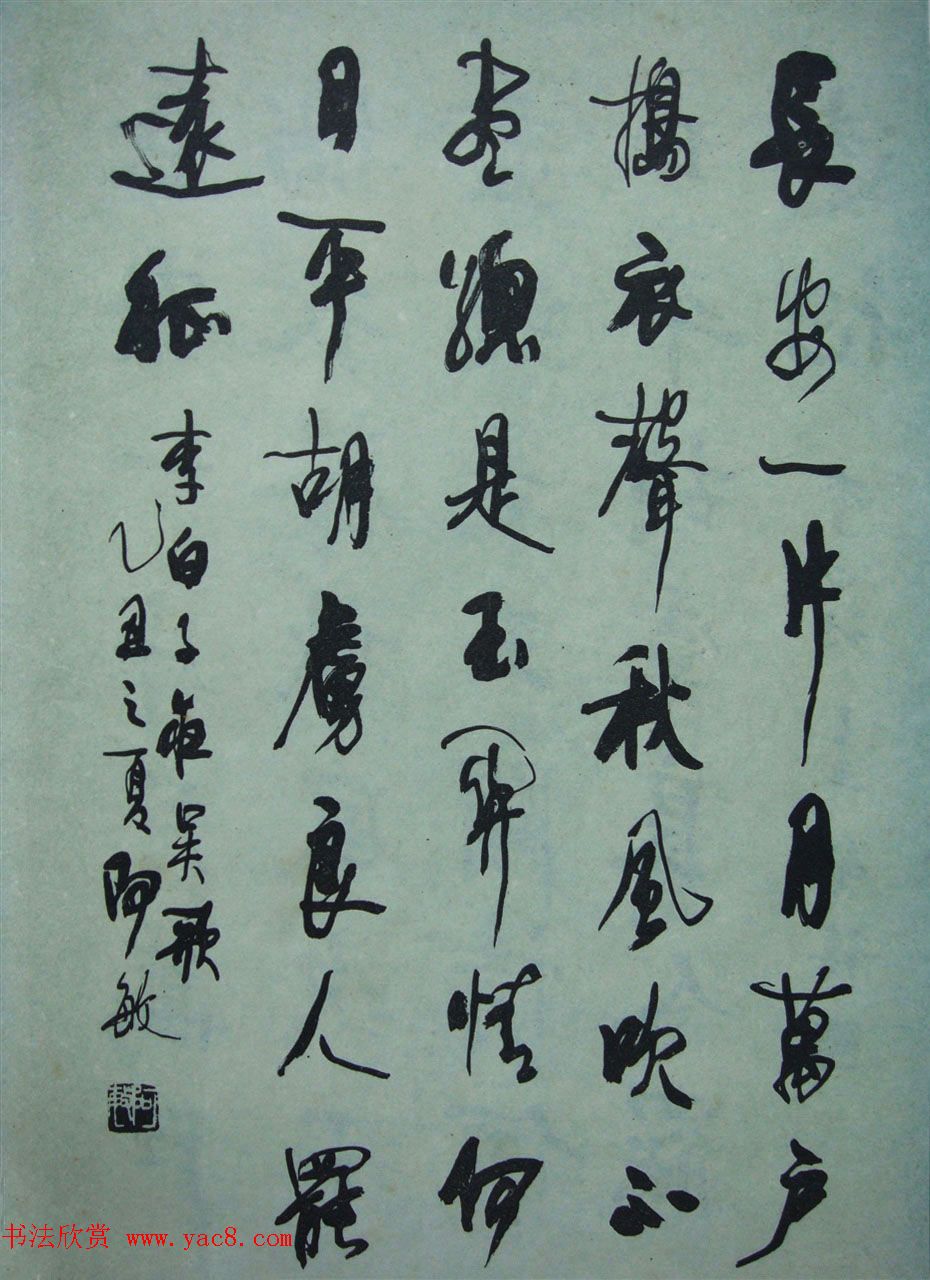 長安一片月萬戶
擣衣聲秋風吹不
盡總是玉關情何
日平胡虜良人罷
遠征
李白子夜吳歌
乙丑之夏阿敏
书法欣赏 www.yac8.com